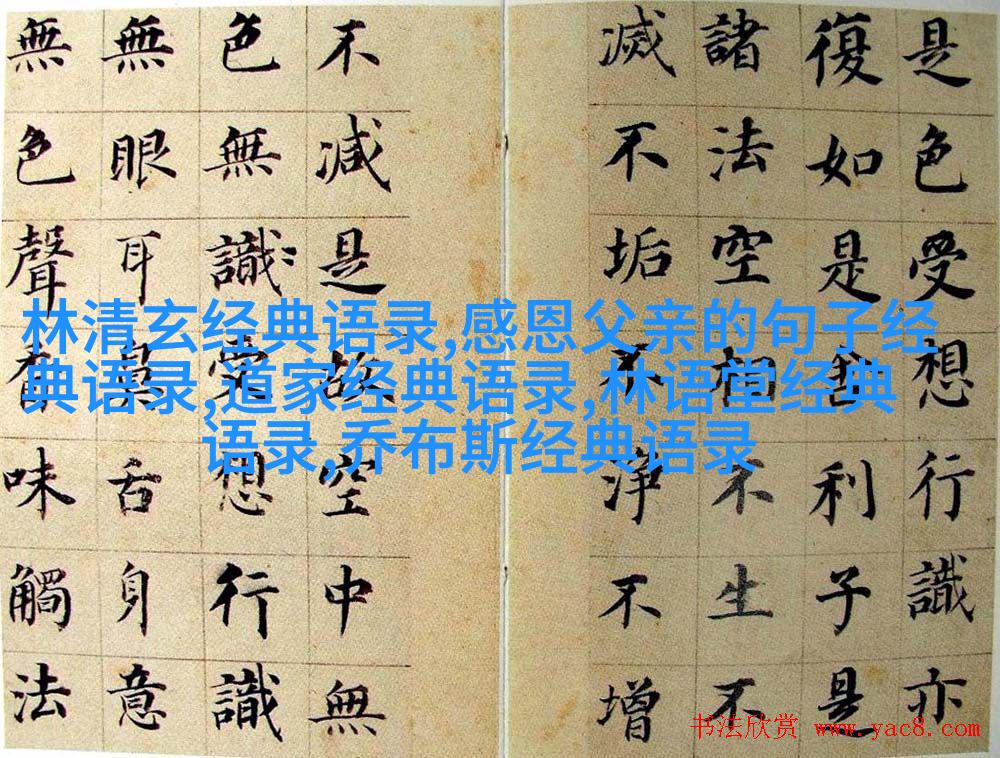 是色受想行識亦
復如是舍利子是
諸法空相不生不
滅不垢不淨不增
不減是故空中無
色無識受想行識
無眼耳鼻舌身意
無色聲香味觸法
林清玄经典语录,感恩父亲的句子经
典语录,道家经典语录,林语堂经典
语录,乔布斯经典语录
书法欣赏 www.yac8.com